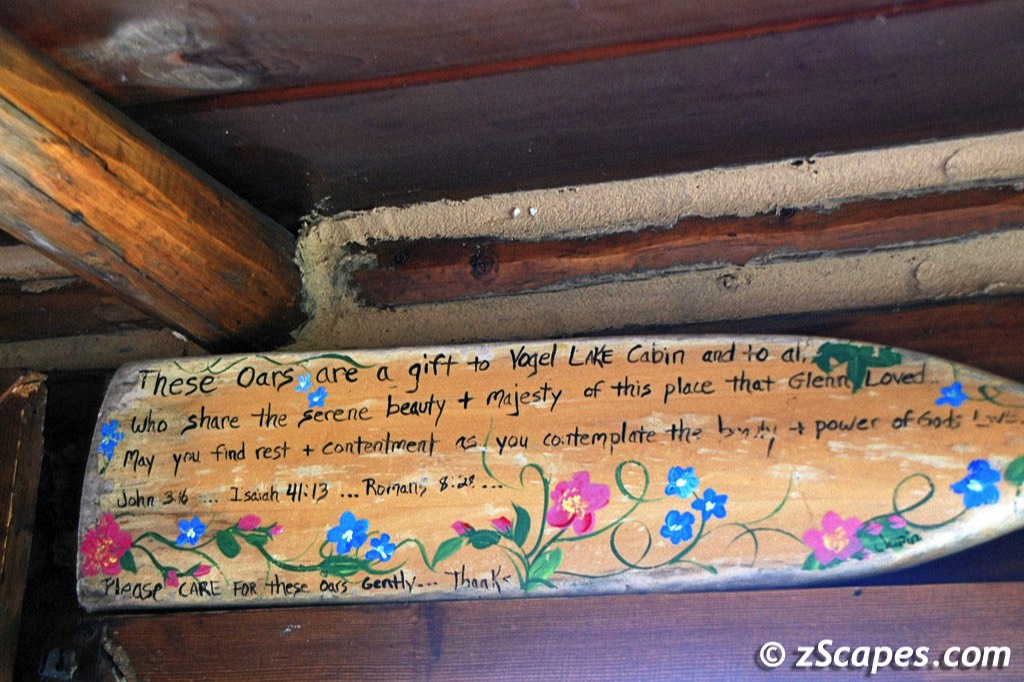 These Oars are a gift to Vogel LAKE Cabin and to al
who share the serene beauty + majesty of this place that Glenn Loved...
May you find rest + contentment as you contemplate the beauty + power of Gods Love.
John 3:16 ... Isaiah 41:13 ... Romans 8:28 ...
Please CARE FOR these oars Gently... Thanks
© zScapes.com